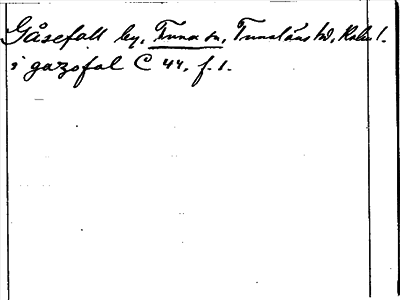 Gåsefall by, Tuna sn, Tunaläns hd, Kalm l.
i gazofal C 44, f. 1.